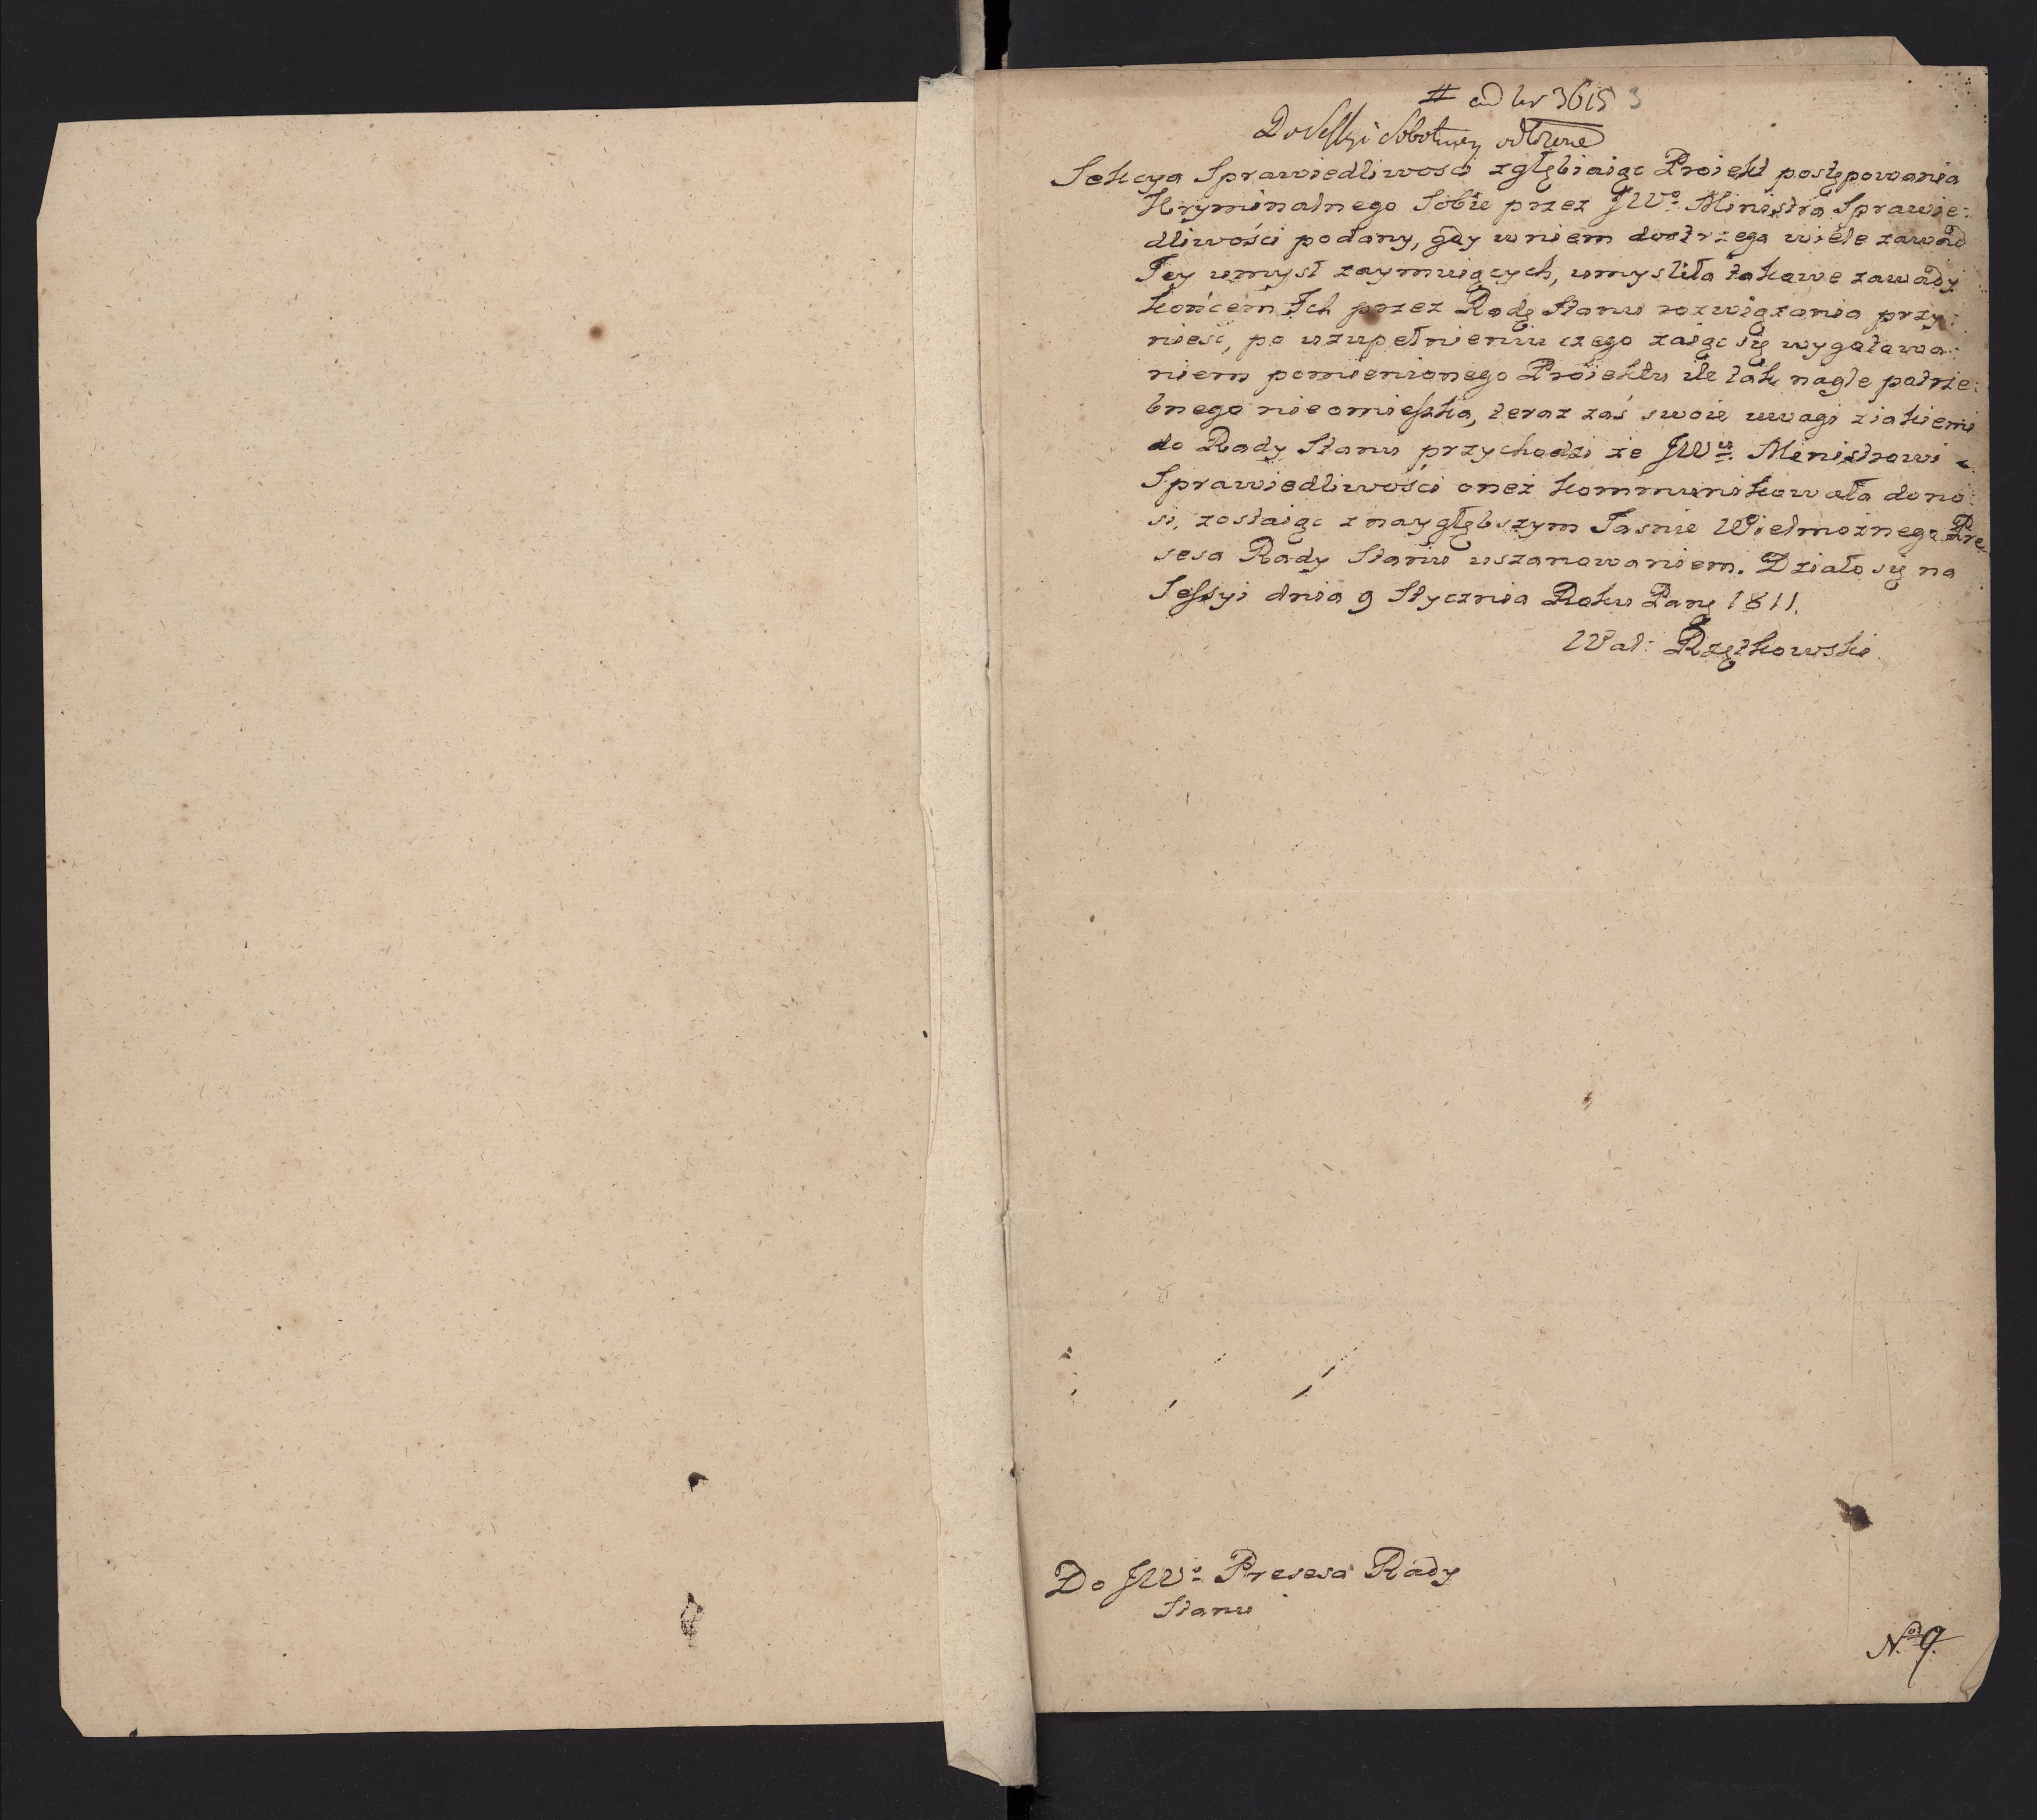 # ad Nr 3615 3
Do Seſsyi Sobotniey odłożone
Sekcya Sprawiedliwości zgłębiaiąc Proiekt postępowania
Kryminalnego Sobie przez JWo Ministra Sprawie:
dliwości podany, gdy w niem dostrzega wiele zawad
Jey umysł zaymuiących, umysliła takowe zawady
końcem Ich przez Radę Stanu rozwiązania przy:
nieść, po uzupełnieniu czego zaiąc się wygotowa:
niem pomienionego Proiektu ile tak nagle potrze:
bnego nieomieſzka, teraz zaś swoie uwagi z iakiemi
do Rady Stanu przychodzi że JWu Ministrowi
Sprawiedliwości oneż kommunikowała dono:
si, zostaiąc z naygłębszym Jasnie Wielmożnego Pre:
sesa Rady Stanu uszanowaniem. Działo się na
Seſsyi dnia 9 Stycznia Roku Pang 1811.
Wal: Rzętkowski
Do JWo Presesa Rady
Stanu
No 9.